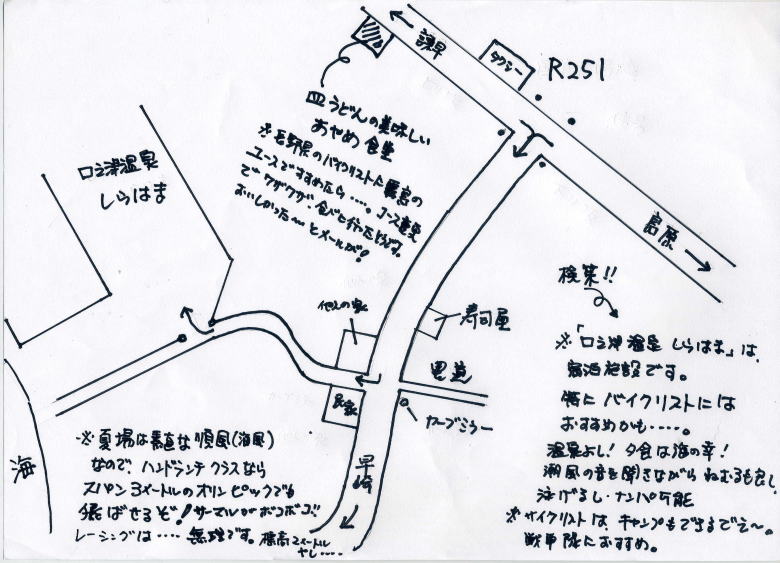 諫早
タクシー
R251
皿うどんの美味しい
あやめ食堂
※長野県のバイクリストに
ユースですすめたら……。コース変更
でワザワザ、食べに行ったそうです。
おいしかった〜とメールが!
口之津温泉
しらはま
島原
検索!!
他人の家
寿司屋
里道
民家
カーブミラー
早崎
海
※「口之津温泉 しらはま」は、
宿泊施設です。
特にバイクリストには
おすすめかも……。
温泉よし!夕食は海の幸!
潮風の音を聞きながらねむるも良し
泳げるし・ナンパ可能
※サイクリストは、キャンプもできるでえ〜。
戦車隊におすすめ。
※夏場は素直な順風(海風)
なので、ハンドランチクラスなら
スパン3メートルのオリンピックでも
飛ばせるぞ!サーマルがボコボコ!!
レーシングは……無理です。標高2メートル
やし……